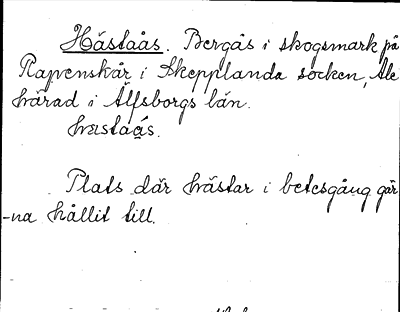 Hästaås. Bergås i skogsmark på
Rapenskär i Skepplanda socken, Ale
härad i Älfsborgs län.
hæstaås.
Plats där hästar i betesgång gär
-na hållit till.